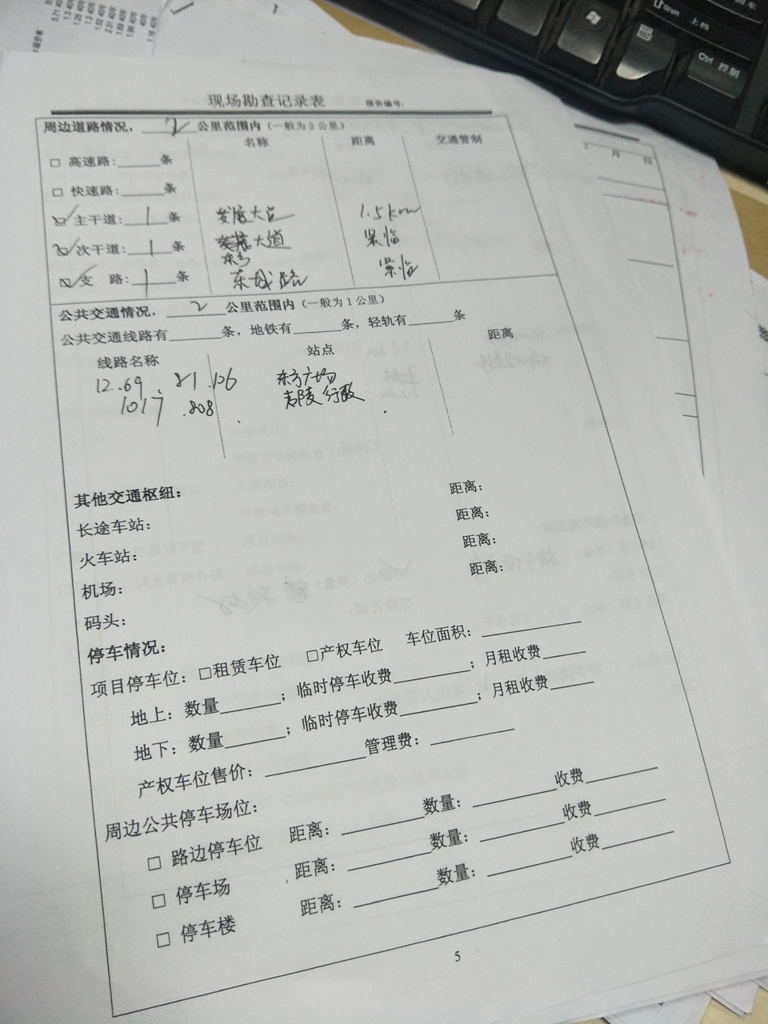 现场勘查记录表 报告编号:
周边道路情况, 2 公里范围内（一般为2公里）
名称 距离 交通管制
□ 高速路: 条
□ 快速路: 条
☑ 主干道: 1 条 发展大道 1.5km
☑ 次干道: 1 条 大道 紧临
东方
☑ 支 路: 1 条 东城路 紧临
公共交通情况, 2 公里范围内（一般为1公里）
公共交通线路有 条, 地铁有 条, 轻轨有 条
线路名称 站点 距离
12.69.81.106 东方广场
1017.808 夷陵行政
其他交通枢纽:
长途车站: 距离:
火车站: 距离:
机场: 距离:
码头: 距离:
停车情况:
项目停车位: □租赁车位 □产权车位 车位面积:
地上: 数量 ; 临时停车收费 ; 月租收费
地下: 数量 ; 临时停车收费 ; 月租收费
产权车位售价: 管理费:
周边公共停车场位:
□ 路边停车位 距离: 数量: 收费
□ 停车场 距离: 数量: 收费
□ 停车楼 距离: 数量: 收费
5
Ctrl 控制
上档